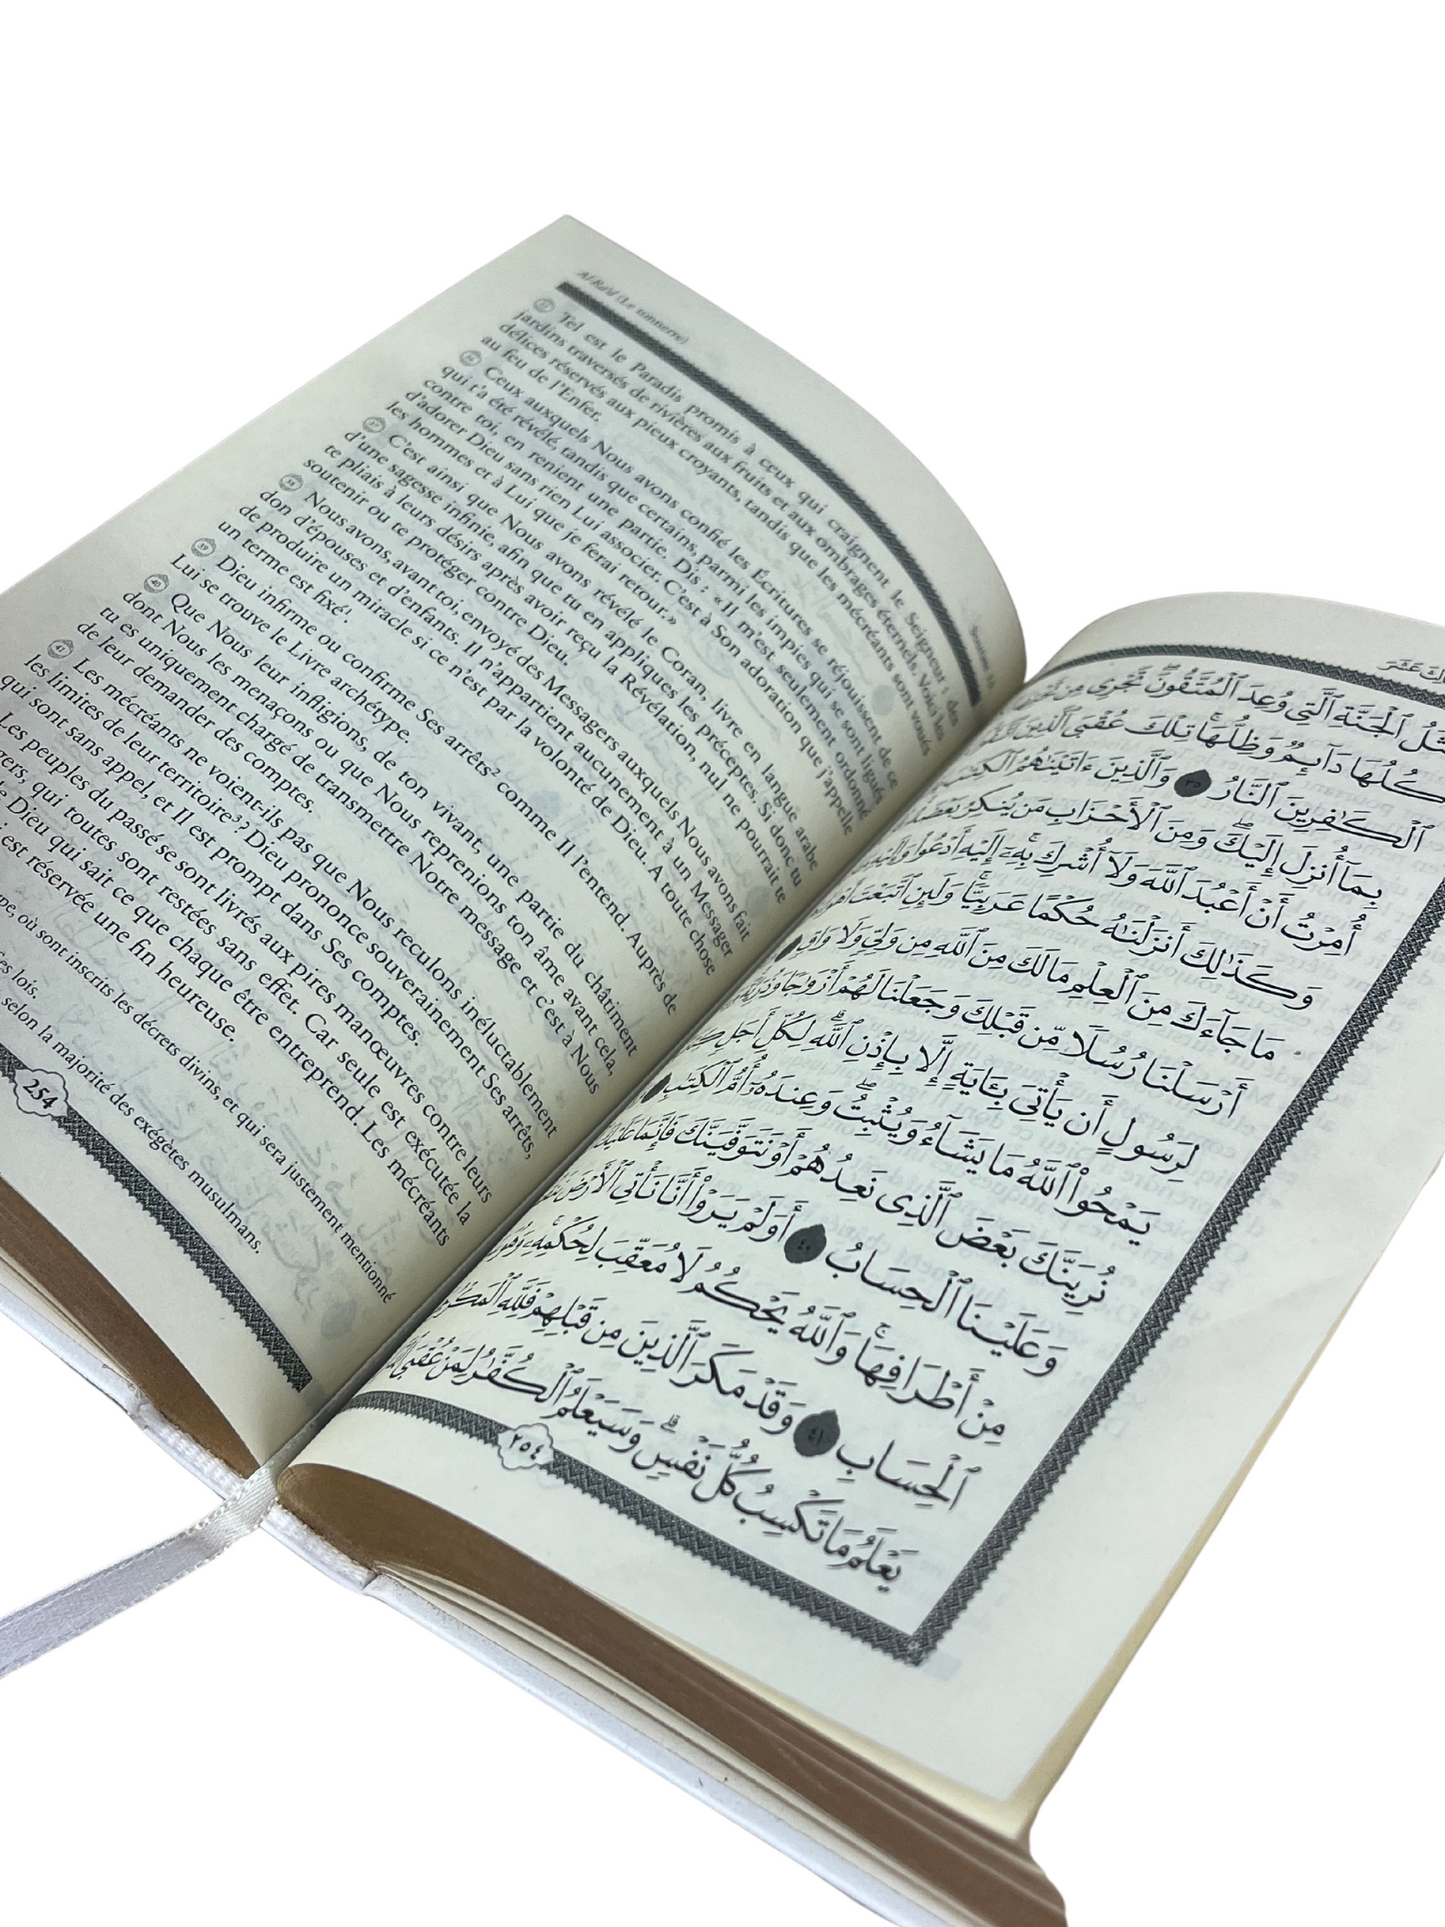 Al Ra'd (Le tonnerre)
35 Tel est le Paradis promis à ceux qui craignent le Seigneur : des
jardins traversés de rivières aux fruits et aux ombrages éternels. Voici les
délices réservés aux pieux croyants, tandis que les mécréants sont voués
au feu de l'Enfer.
36 Ceux auxquels Nous avons confié les Écritures se réjouissent de ce
qui t'a été révélé, tandis que certains, parmi les impies qui se sont ligués
contre toi, en renient une partie. Dis : « Il m'est seulement ordonné
d'adorer Dieu sans rien Lui associer. C'est à Son adoration que j'appelle
les hommes et à Lui que je ferai retour. »
37 C'est ainsi que Nous avons révélé le Coran, livre en langue arabe
d'une sagesse infinie, afin que tu en appliques les préceptes. Si donc tu
te pliais à leurs désirs après avoir reçu la Révélation, nul ne pourrait te
soutenir ou te protéger contre Dieu.
38 Nous avons, avant toi, envoyé des Messagers auxquels Nous avons fait
don d'épouses et d'enfants. Il n'appartient aucunement à un Messager
de produire un miracle si ce n'est par la volonté de Dieu. A toute chose
un terme est fixé¹.
39 Dieu infirme ou confirme Ses arrêts² comme Il l'entend. Auprès de
Lui se trouve le Livre archétype.
40 Que Nous leur infligions, de ton vivant, une partie du châtiment
dont Nous les menaçons ou que Nous reprenions ton âme avant cela,
tu es uniquement chargé de transmettre Notre message et c'est à Nous
de leur demander des comptes.
41 Les mécréants ne voient-ils pas que Nous reculons inéluctablement
les limites de leur territoire³? Dieu prononce souverainement Ses arrêts,
qui sont sans appel, et Il est prompt dans Ses comptes.
Les peuples du passé se sont livrés aux pires manœuvres contre leurs
qui toutes sont restées sans effet. Car seule est exécutée la
de Dieu qui sait ce que chaque être entreprend. Les mécréants
est réservée une fin heureuse.
où sont inscrits les décrets divins, et qui sera justement mentionné
lois.
selon la majorité des exégètes musulmans.
254
ٱلْجَنَّةِ ٱلَّتِي وُعِدَ ٱلْمُتَّقُونَ تَجْرِي مِن
أُكُلُهَا دَآئِمٌ وَظِلُّهَا تِلْكَ عُقْبَى ٱلَّذِينَ
ٱلْكَٰفِرِينَ ٱلنَّارُ ٣٥ وَٱلَّذِينَ ءَاتَيْنَٰهُمُ ٱلْكِتَٰبَ
بِمَآ أُنزِلَ إِلَيْكَ وَمِنَ ٱلْأَحْزَابِ مَن يُنكِرُ بَعْضَهُ
أُمِرْتُ أَنْ أَعْبُدَ ٱللَّهَ وَلَآ أُشْرِكَ بِهِۦٓ إِلَيْهِ أَدْعُوا۟
وَكَذَٰلِكَ أَنزَلْنَٰهُ حُكْمًا عَرَبِيًّا وَلَئِنِ ٱتَّبَعْتَ
مَا جَآءَكَ مِنَ ٱلْعِلْمِ مَا لَكَ مِنَ ٱللَّهِ مِن وَلِيٍّ وَلَا وَاقٍ
أَرْسَلْنَا رُسُلًا مِّن قَبْلِكَ وَجَعَلْنَا لَهُمْ أَزْوَٰجًا وَذُرِّيَّةً
لِرَسُولٍ أَن يَأْتِيَ بِـَٔايَةٍ إِلَّا بِإِذْنِ ٱللَّهِ لِكُلِّ أَجَلٍ
يَمْحُوا۟ ٱللَّهُ مَا يَشَآءُ وَيُثْبِتُ وَعِندَهُۥٓ أُمُّ ٱلْكِتَٰبِ
نُرِيَنَّكَ بَعْضَ ٱلَّذِي نَعِدُهُمْ أَوْ نَتَوَفَّيَنَّكَ فَإِنَّمَا عَلَيْكَ
وَعَلَيْنَا ٱلْحِسَابُ ٤٠ أَوَلَمْ يَرَوْا۟ أَنَّا نَأْتِي ٱلْأَرْضَ
مِنْ أَطْرَافِهَا وَٱللَّهُ يَحْكُمُ لَا مُعَقِّبَ لِحُكْمِهِۦ وَهُوَ
ٱلْحِسَابِ ٤١ وَقَدْ مَكَرَ ٱلَّذِينَ مِن قَبْلِهِمْ فَلِلَّهِ ٱلْمَكْرُ
يَعْلَمُ مَا تَكْسِبُ كُلُّ نَفْسٍ وَسَيَعْلَمُ ٱلْكُفَّٰرُ لِمَنْ عُقْبَى
٢٥٤